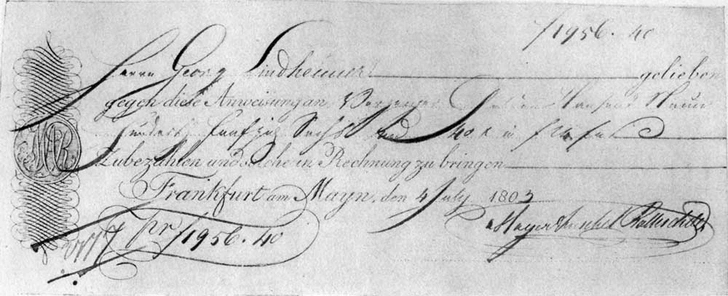 f 1956. 40
Herrn Georg Lindheimer gelieben
gegen diese Anweisung an Vorzeiger Tausend Neun
hundert fünfzig Sechs und 40 x in
zu bezahlen und solche in Rechnung zu bringen
Frankfurt am Mayn, den 4 July 1803
Mayer Amschel Rothschild
MAR
pr f 1956. 40